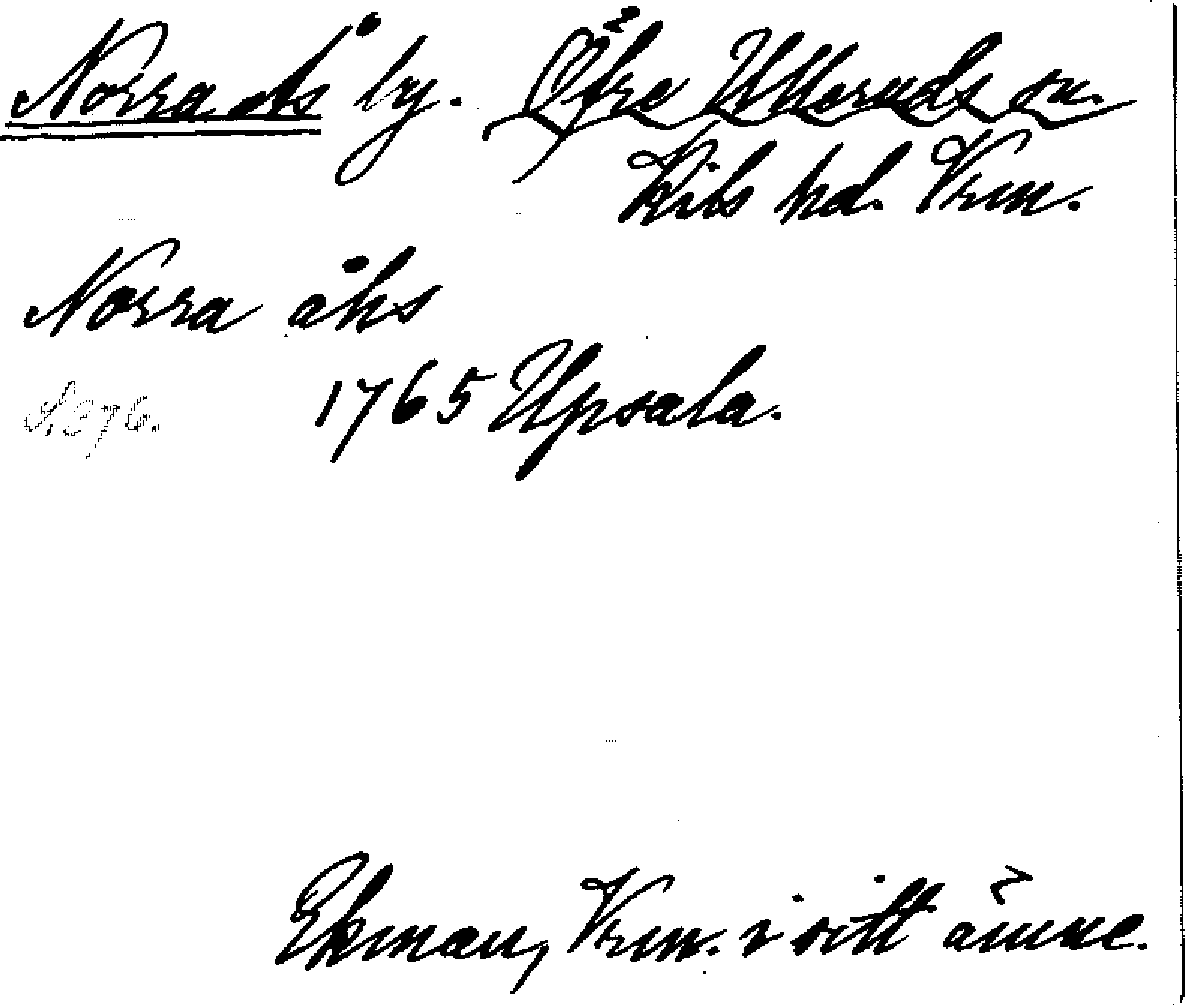 Norra Ås by. Öfre Ulleruds sn.
Kils hd. Vrm.
Norra åhs
S. 376. 1765 Upsala.
Ekman, Vrm. i sitt ämne.